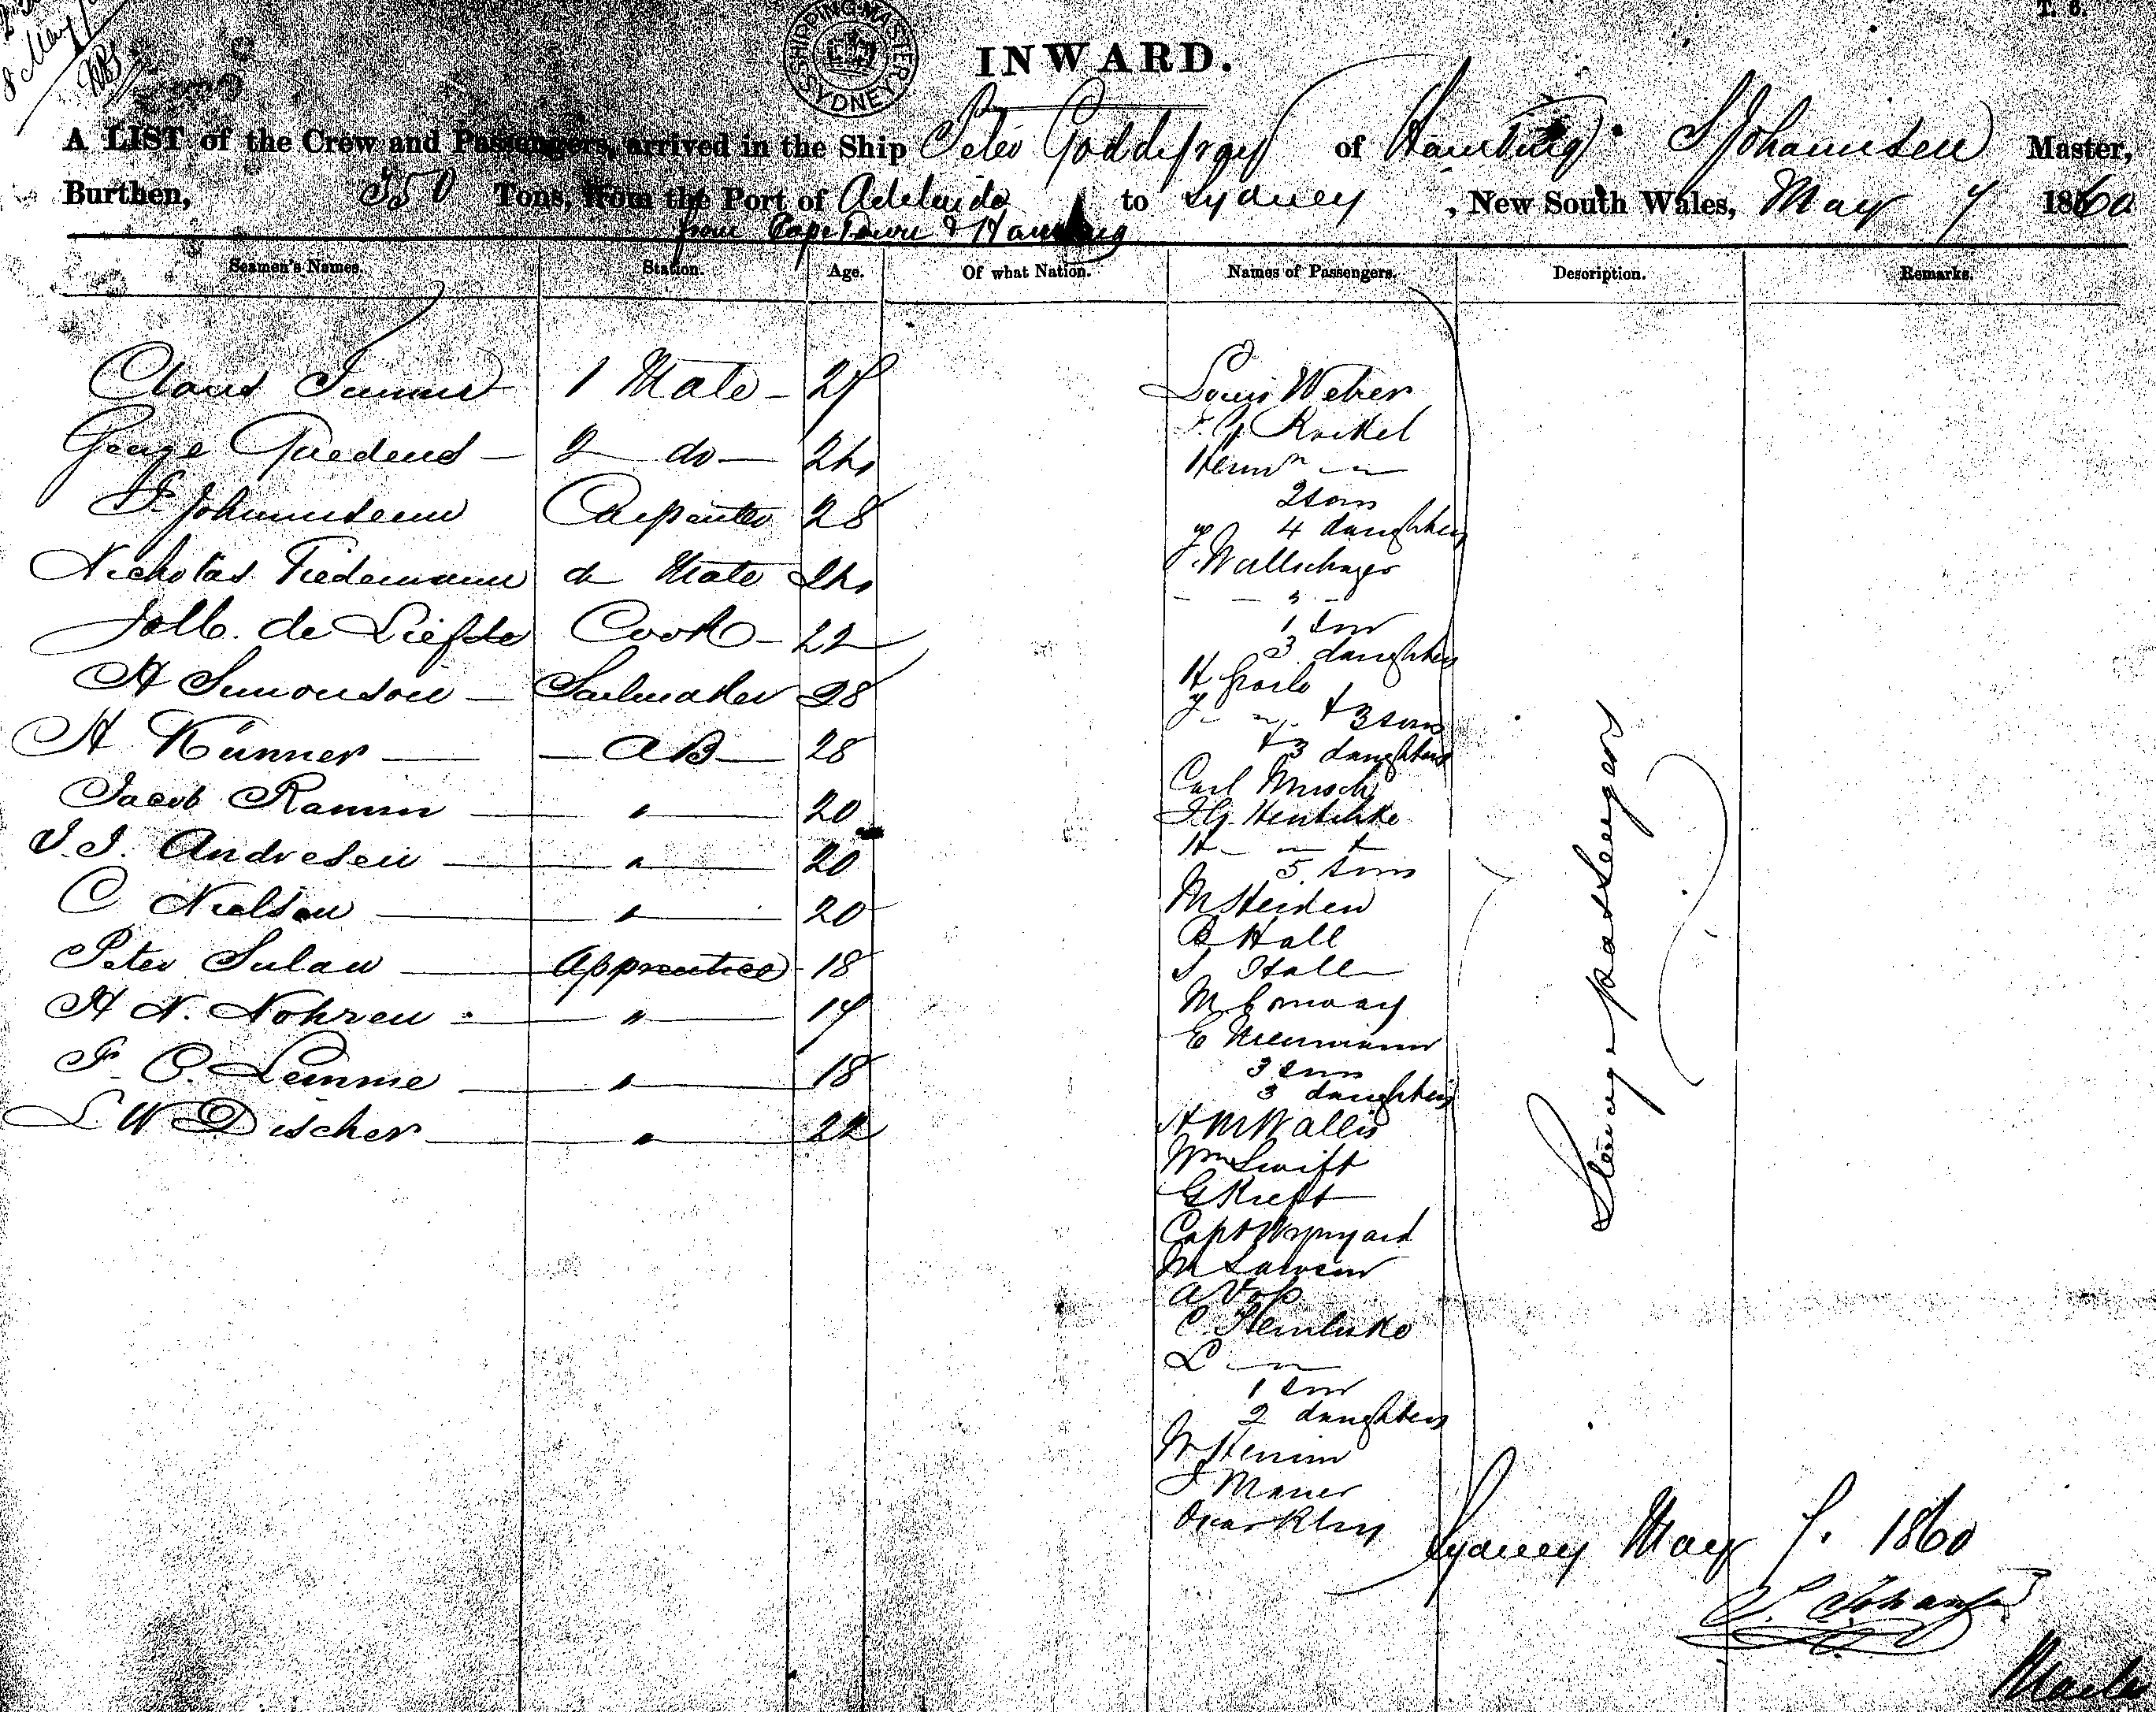 8 May
T. 6.
SHIPPING MASTER SYDNEY
INWARD.
A LIST of the Crew and Passengers, arrived in the Ship Peter Goddefroy of Hamburg S Johannsen Master,
Burthen, 350 Tons, from the Port of Adelaide to Sydney, New South Wales, May 7 1860
from Cape Town & Hamburg
Seamen's Names. Station. Age. Of what Nation. Names of Passengers. Description. Remarks.
Claus 1 Mate - 27
George - 2 do - 24
Carpenter 28
Nicholas Tiedemann do Mate 24
de Liefde Cook - 22
H Simonson - Sailmaker 28
H Künner - AB - 28
Jacob Ramm " 20
J. J. Andresen " 20
C Nielson " 20
Peter Sulau Apprentice 18
H N. Nohren " 17
F. C. Lemme " 18
L W Discher " 22
Louis Weber
2 sons
4 daughters
1 son
3 daughters
H
+ 3 sons
+ 3 daughters
Carl
5 sons
M Heiden
B Hall
S Hall
M Conway
E Neumann
3 sons
3 daughters
H M Wallis
Wm Swift
G Kreft
Capt Wynyard
M Lawson
C.
L
1 son
2 daughters
W
F Maner
Oscar
Steerage passengers
Sydney May 7. 1860
S. Johannsen
Master